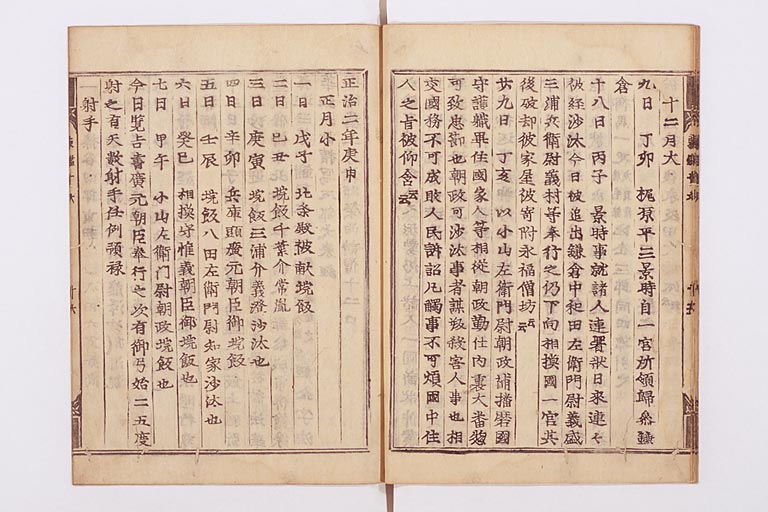 十二月大
九日 丁卯 梶原平三景時自一宮所領歸參鎌
倉
十八日 丙子 景時事就諸人連署狀日來連々
被經沙汰今日被追出鎌倉中和田左衞門尉義盛
三浦兵衞尉義村等奉行之仍下向相摸國一宮其
後破却彼家屋被寄附永福僧坊云云
廿九日 丁亥 以小山左衞門尉朝政補播磨國
守護職畢住國家人等相從朝政勤仕內裏大番
可致忠節也朝政可沙汰事者謀叛殺害人事也相
交國務不可成敗人民訴詔凡觸事不可煩國中住
人之旨被仰含云云
正治二年庚申
正月小
一日 戊子 北条殿被献埦飯
二日 己丑 埦飯千葉介常胤
三日 庚寅 埦飯三浦介義澄沙汰也
四日 辛卯 兵庫頭廣元朝臣御埦飯
五日 壬辰 埦飯八田左衞門尉知家沙汰也
六日 癸巳 相摸守惟義朝臣御埦飯也
七日 甲午 小山左衞門尉朝政埦飯也
今日覽吉書廣元朝臣奉行之次有御弓始二五度
射之有天數射手任例預祿
一射手